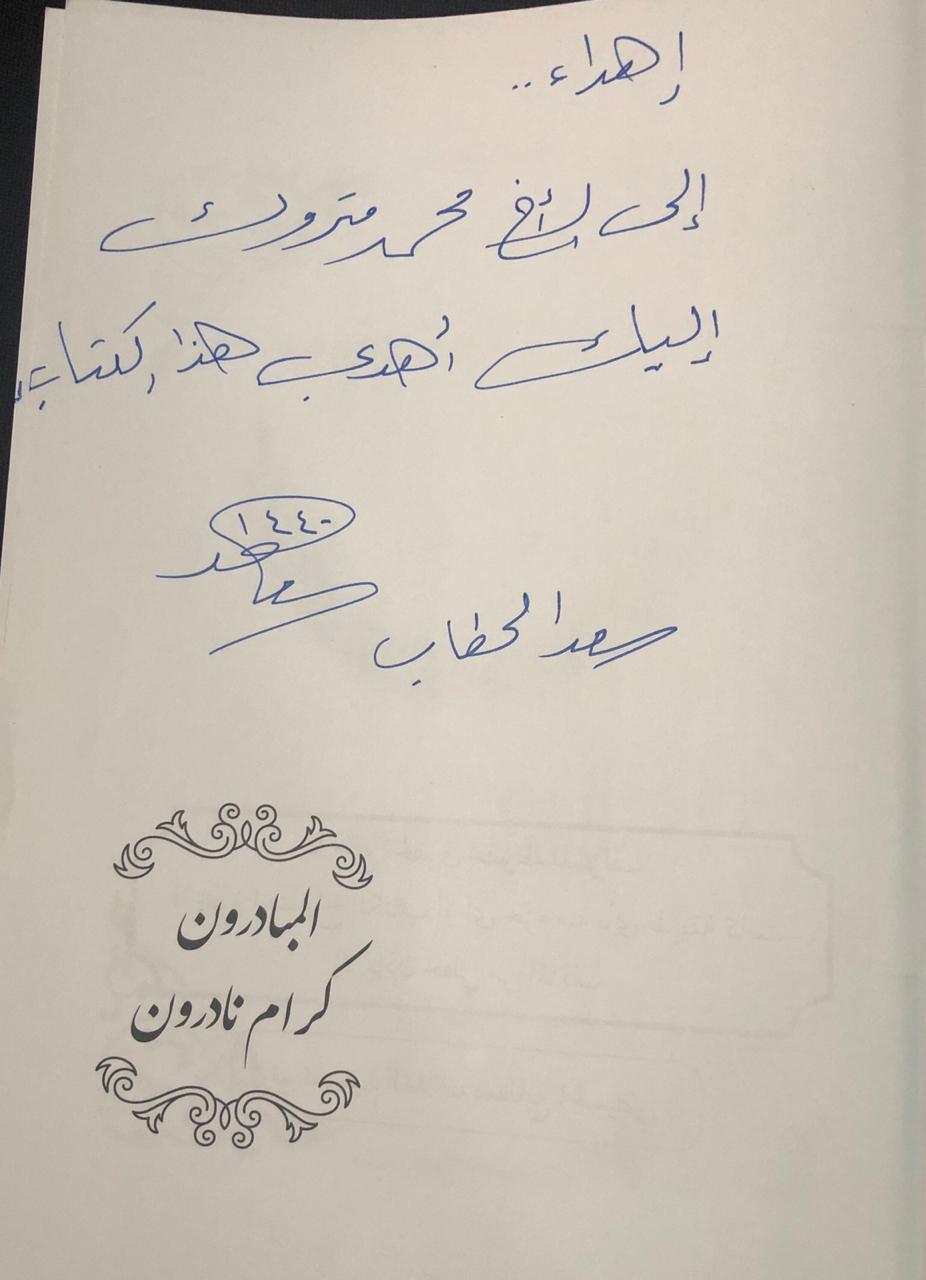 إهداء..
إلى الأخ محمد متروك
إليك أهدي هذا الكتاب،
١٤٤٠
سعد
سعد الحطاب
المبادرون
كرام نادرون